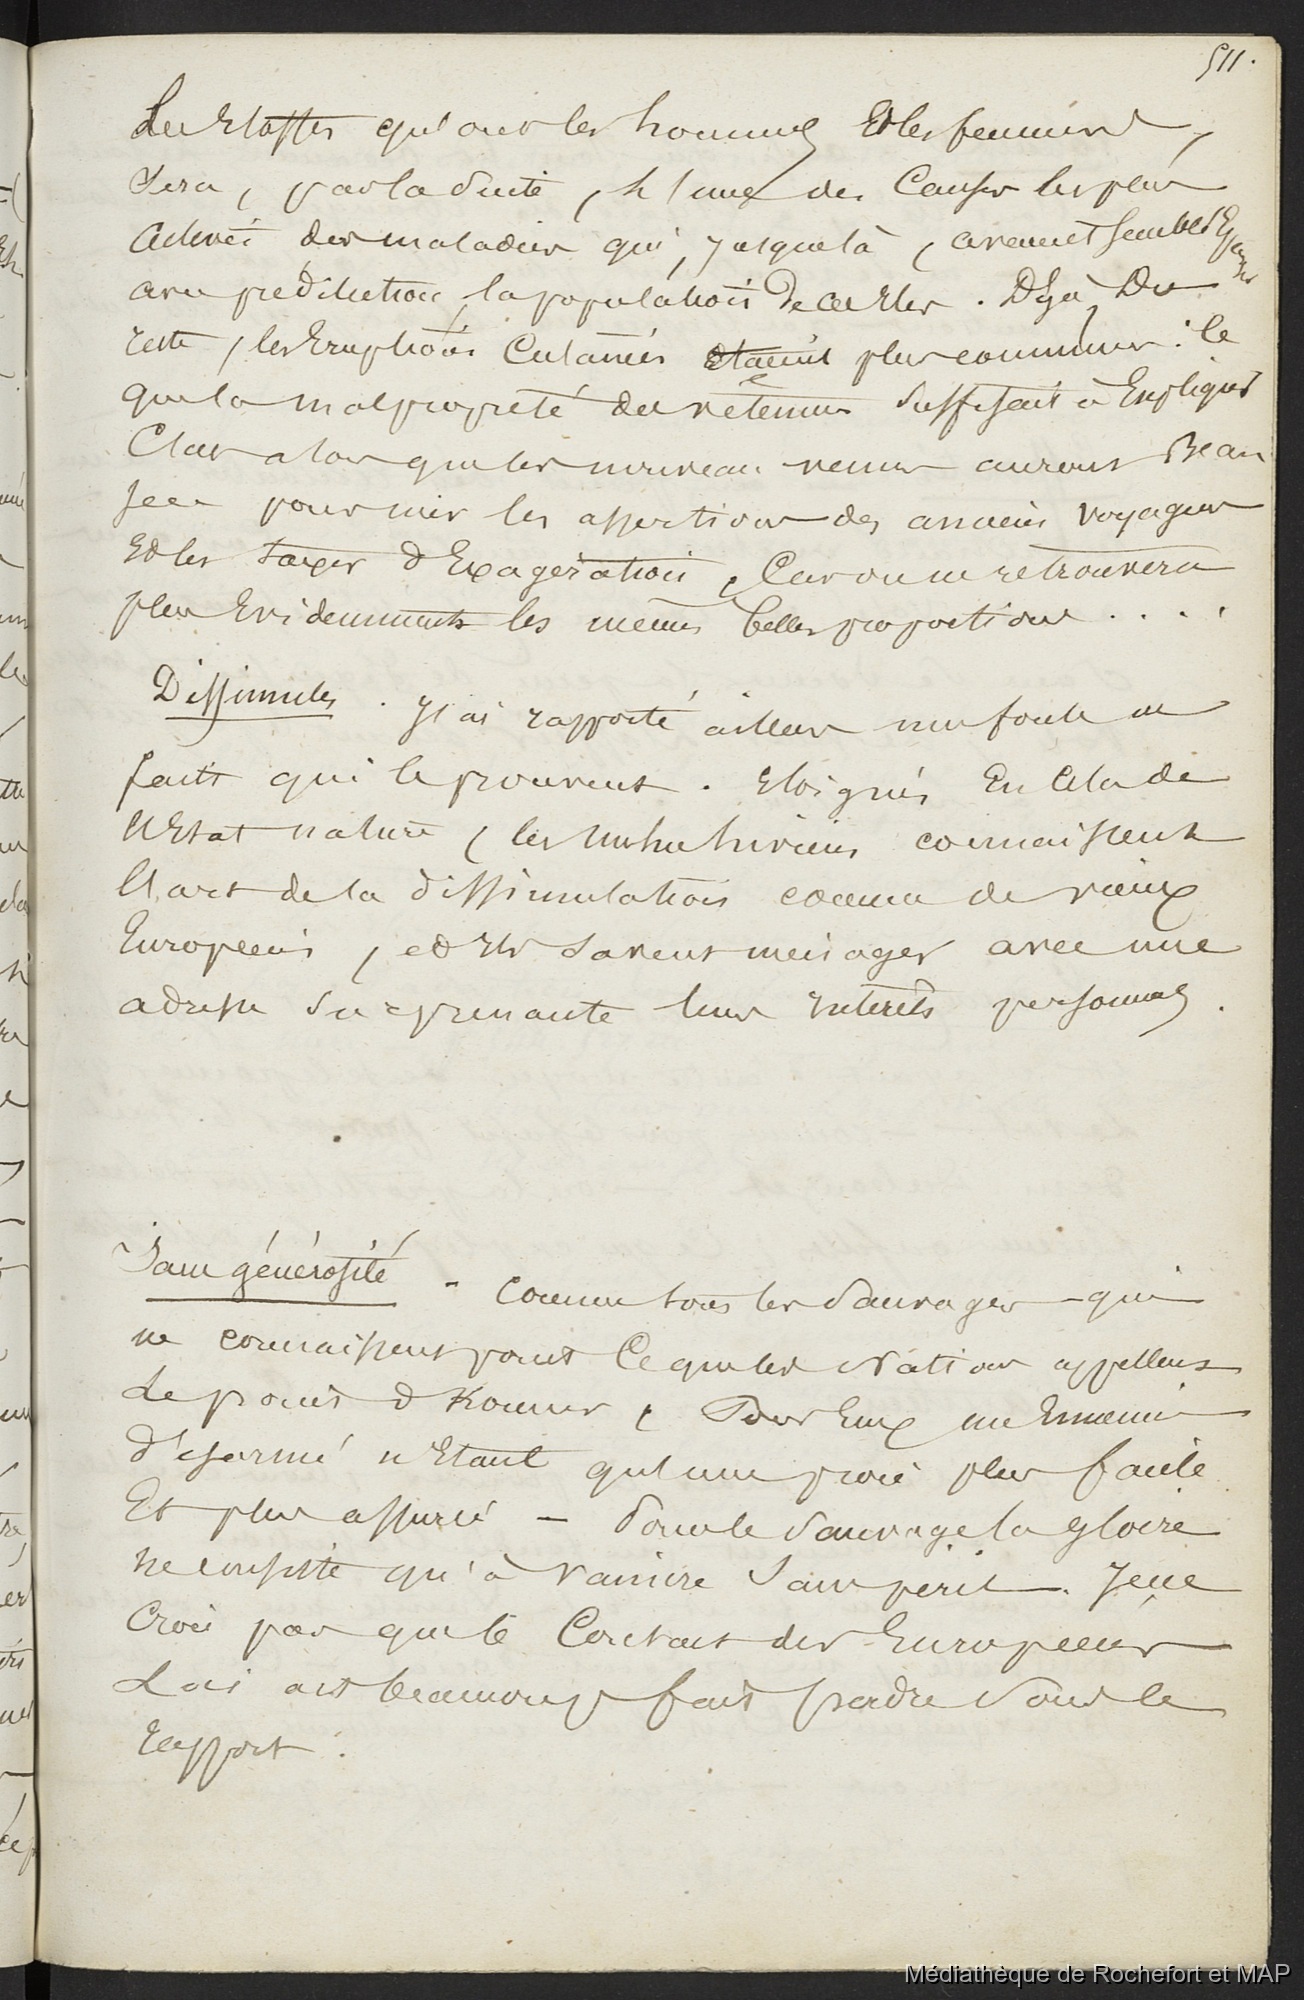 511.
Les Etoffes qu'ont les hommes Et les femmes,
Sera, par la suite, l'une des Causes les plus
actives des maladies qui, jusque là, avaient semblé Epargner
avec prédilection, la population de ces Iles. Déjà, Du
reste, les Eruptions Cutanées étaient plus communes : ce
que la malpropreté des vêtemens suffisait à Expliquer
C'est alors que les nouveau venus auront Beau
Jeu pour nier les assertions des anciens voyageurs
Et les taxer d'Exagération, Car on ne retrouvera
plus Evidemment les mêmes belles proportions....
Dissimulés. J'ai rapporté ailleurs une foule de
faits qui le prouvent. Eloignés En Cela de
l'Etat nature, les Nuhuhiviens connaissent
l'art de la dissimulation comme de vieux
Européens, et Ils savent ménager avec une
adresse surprenante leurs Intérêts personnels.
Sans générosité - Comme tous les Sauvages qui
ne connaissent point Ce que les Nations appellent
Le point d'honneur, Pour Eux un Ennemi
Désarmé n'Etant qu'une proie plus facile
Et plus assurée - Pour le Sauvage la gloire
ne consiste qu'à vaincre sans péril. Je ne
Crois pas que le Contact des Européens
Lui ait beaucoup fait perdre sous ce
rapport.
Médiathèque de Rochefort et MAP